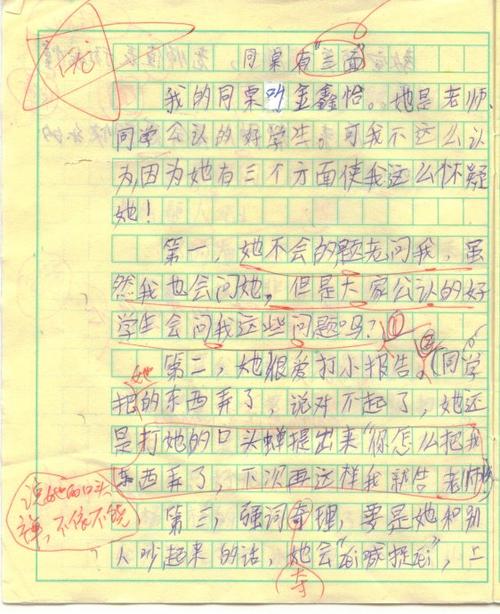 优
同桌有"三面"
我的同桌叫金鑫怡。她是老师、
同学公认的好学生。可我不这么认
为,因为她有三个方面使我这么怀疑
她!
第一,她不会的题老问我,虽
然我也会问她,但是大家公认的好
学生会问我这些问题吗?①
第二,她很爱打小报告。②(同学
她
把的东西弄了,说对不起了,她还
是打她的口头蝉提出来"你怎么把我
东西弄了,下次再这样我就告老师
说她的口头
禅,不依不饶
第三,强词
理,要是她和别
夺
人吵起来的话,她会
喊捉
",上